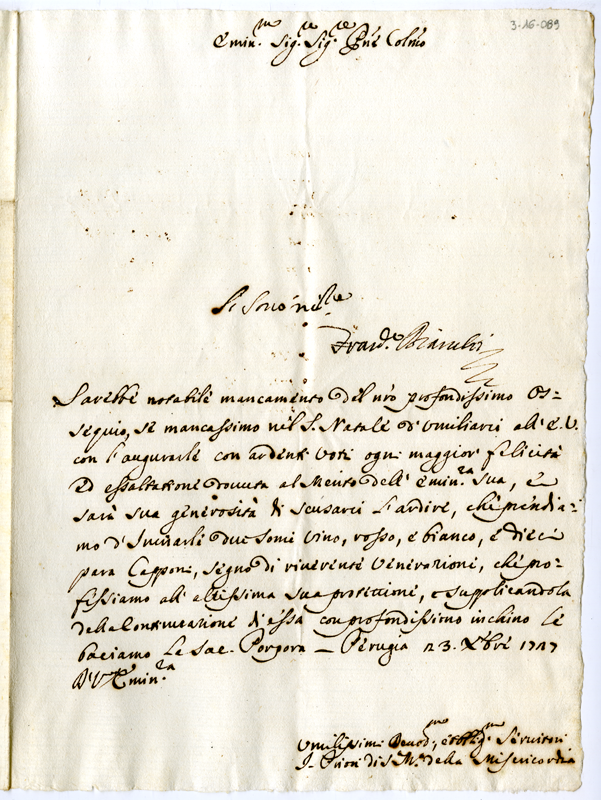 3-16-089
Emin.mo Sig.re Sig.re P̃ne Colmo
Si sono
Fran.co Bianchi
Sarebbe notabile mancamento del nr̃o profondissimo Os=
sequio, se mancassimo nel S. Natale d'umiliarci all'E.V.
con l'augurarle con ardenti voti ogni maggior felicità
Ed essaltatione douuta al Merito dell'Emin.za Sua, e
sarà sua generosità di scusarci l'ardire, che prendia-
mo d'Inuiarle due some vino, rosso, e bianco, e dieci
para Capponi, segno di riuerente Venerazione, che pro-
fessiamo all'altissima sua protezzione, e supplicandola
della Continuazione di essa con profondissimo inchino le
baciamo le Sac. Porpora — Perugia 23. Xbre 1727
D. V. Emin.za
Umilissimi Deuot.mi, e obblig.mi Seruitori
I Priori di S. M.a della Misericordia